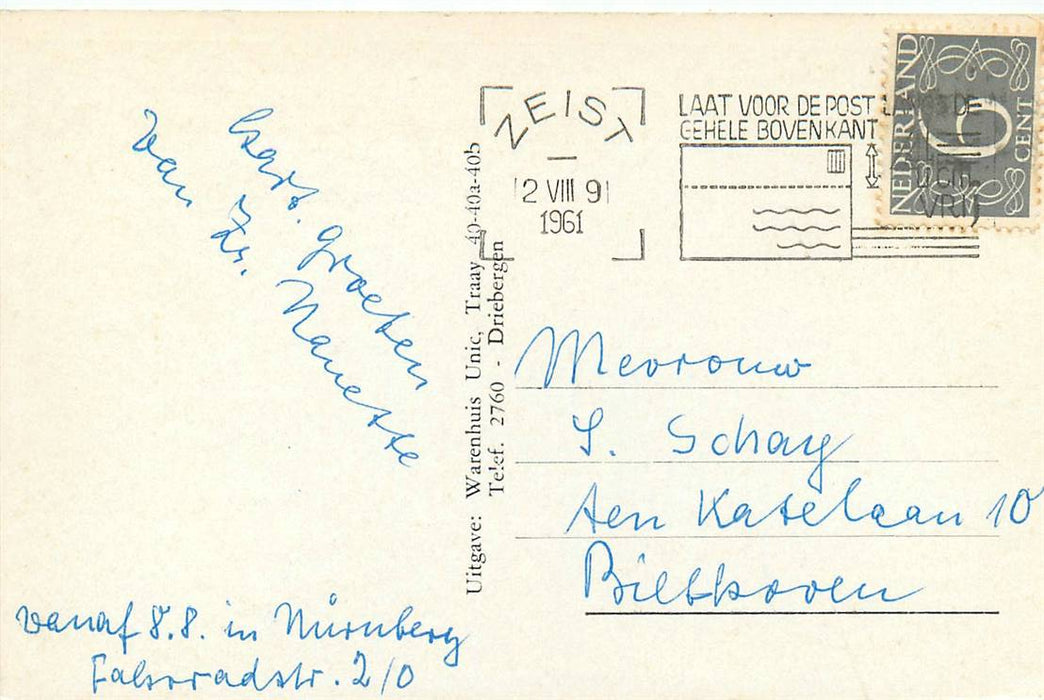 Hart. groeten
van Zr. Nanette
vanaf 8.8. in Nürnberg
Fahrradstr. 2/0
Uitgave: Warenhuis Unic, Traay 40-40a-40b
Telef. 2760 - Driebergen
ZEIST
12 VIII 9
1961
LAAT VOOR DE POST
GEHELE BOVENKANT
VRIJ
NEDERLAND
6
CENT
Mevrouw
S. Schay
ten Katelaan 10
Bilthoven